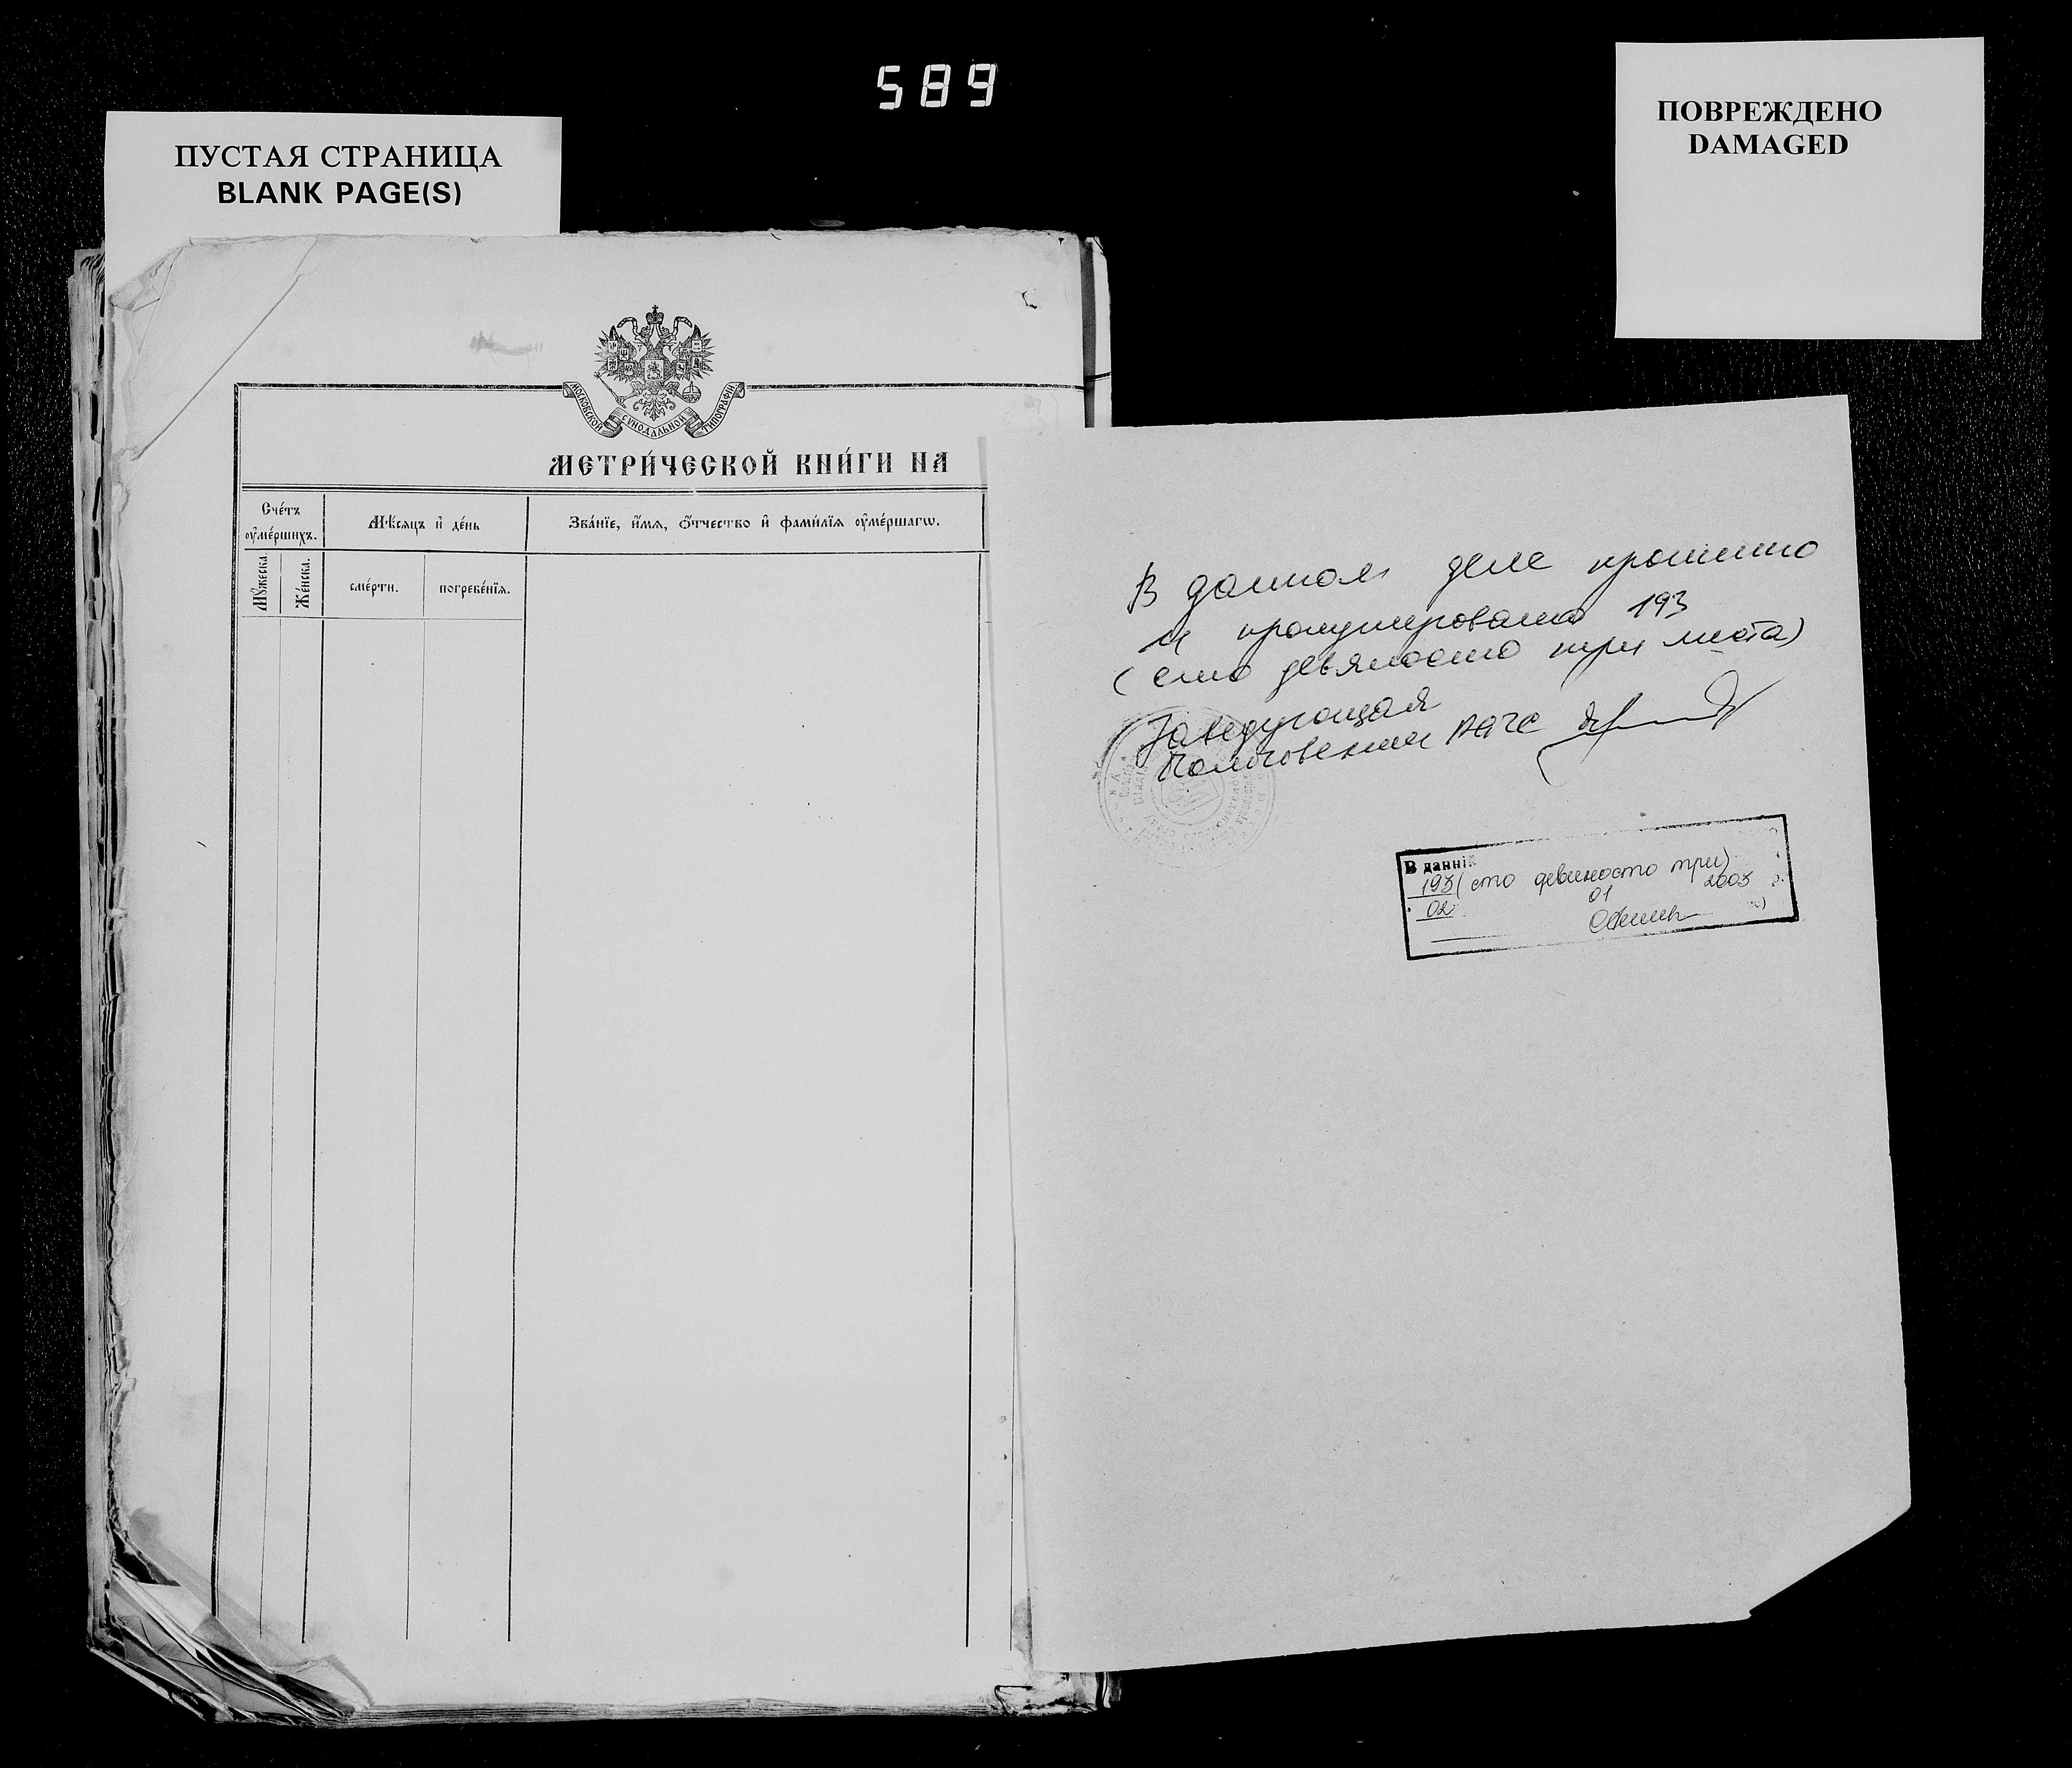 589
ПУСТАЯ СТРАНИЦА
BLANK PAGE(S)
ПОВРЕЖДЕНО
DAMAGED
МОСКОВСКОЙ СѴНОДАЛЬНОЙ ТИПОГРАФІИ
МЕТРИ́ЧЕСКОЙ КНИ́ГИ НА
Сче́тъ
оу҆ме́ршихъ.
Мѣ́сяцъ и҆ де́нь
Зва́нїе, и҆́мѧ, ѻ҆́тчество и҆ фами́лїѧ оу҆ме́ршагѡ.
Мꙋ́жеска.
Же́нска.
сме́рти.
погребе́нїѧ.
В данном деле прошито
и пронумеровано 193
(сто девяносто три листа)
Заведующая
РАГС
В данні
193 (сто девяносто три)
02 01 2003